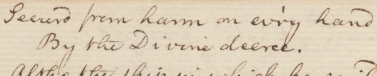 Secur'd from harm on ev'ry hand
By the Divine decree.